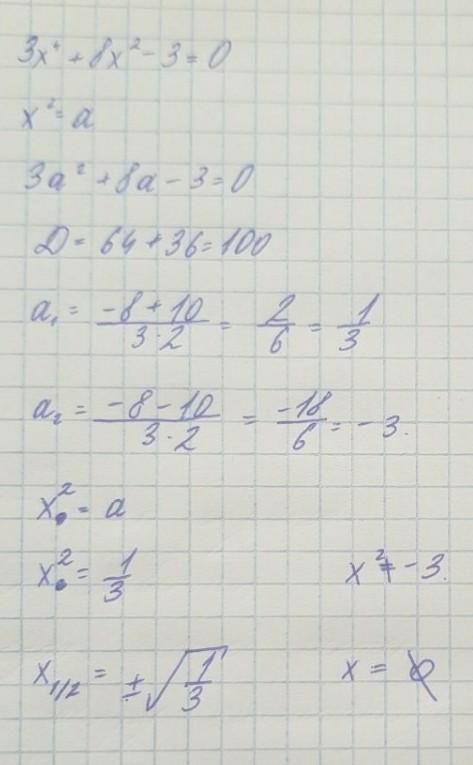 3x⁴ + 8x² - 3 = 0
x² = a
3a² + 8a - 3 = 0
D = 64 + 36 = 100
a₁ = (-8 + 10)/(3·2) = 2/6 = 1/3
a₂ = (-8 - 10)/(3·2) = -18/6 = -3.
x² = a
x² = 1/3 x² ≠ -3.
x₁/₂ = ±√(1/3) x = ∅